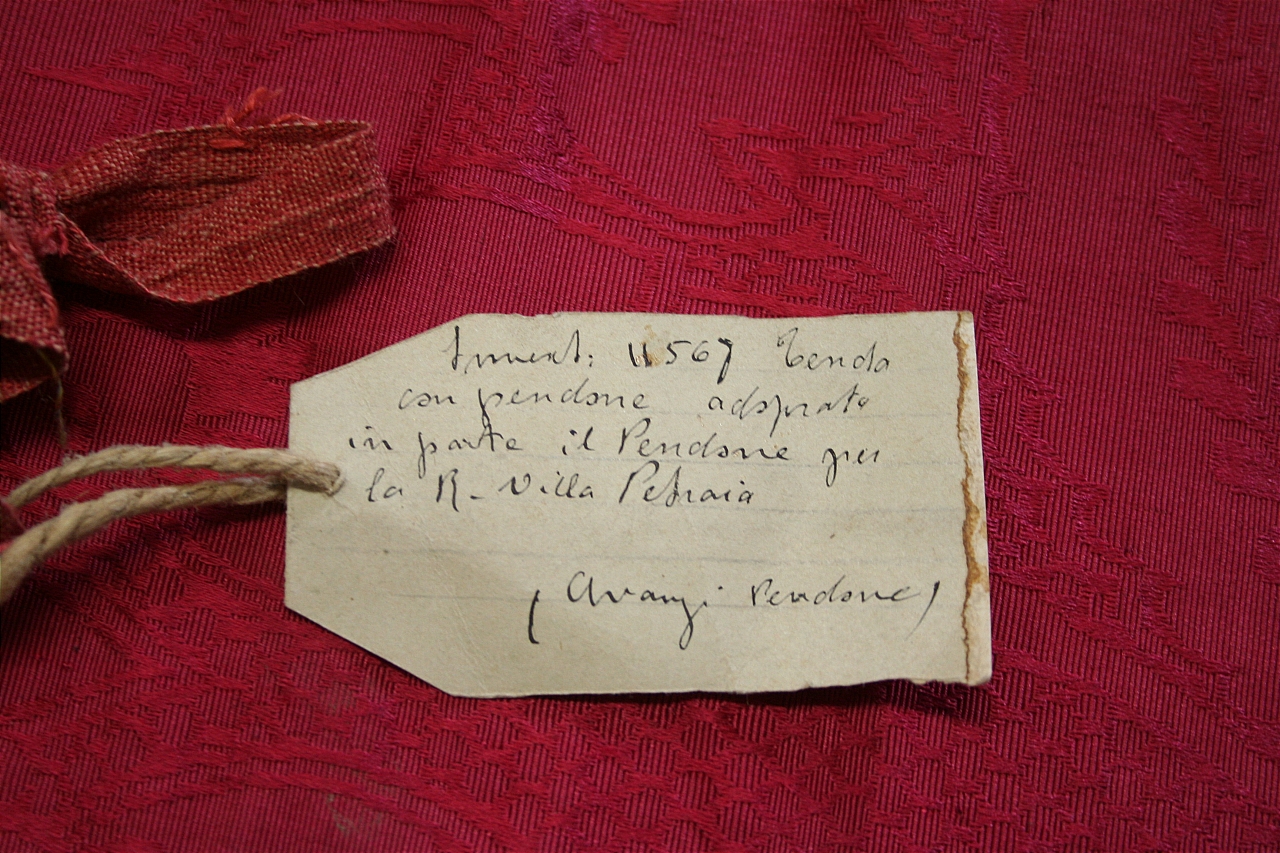 Invent: 11567 Tenda
con pendone adoprato
in parte il Pendone per
la R. Villa Petraia
(Avanzi Pendone)